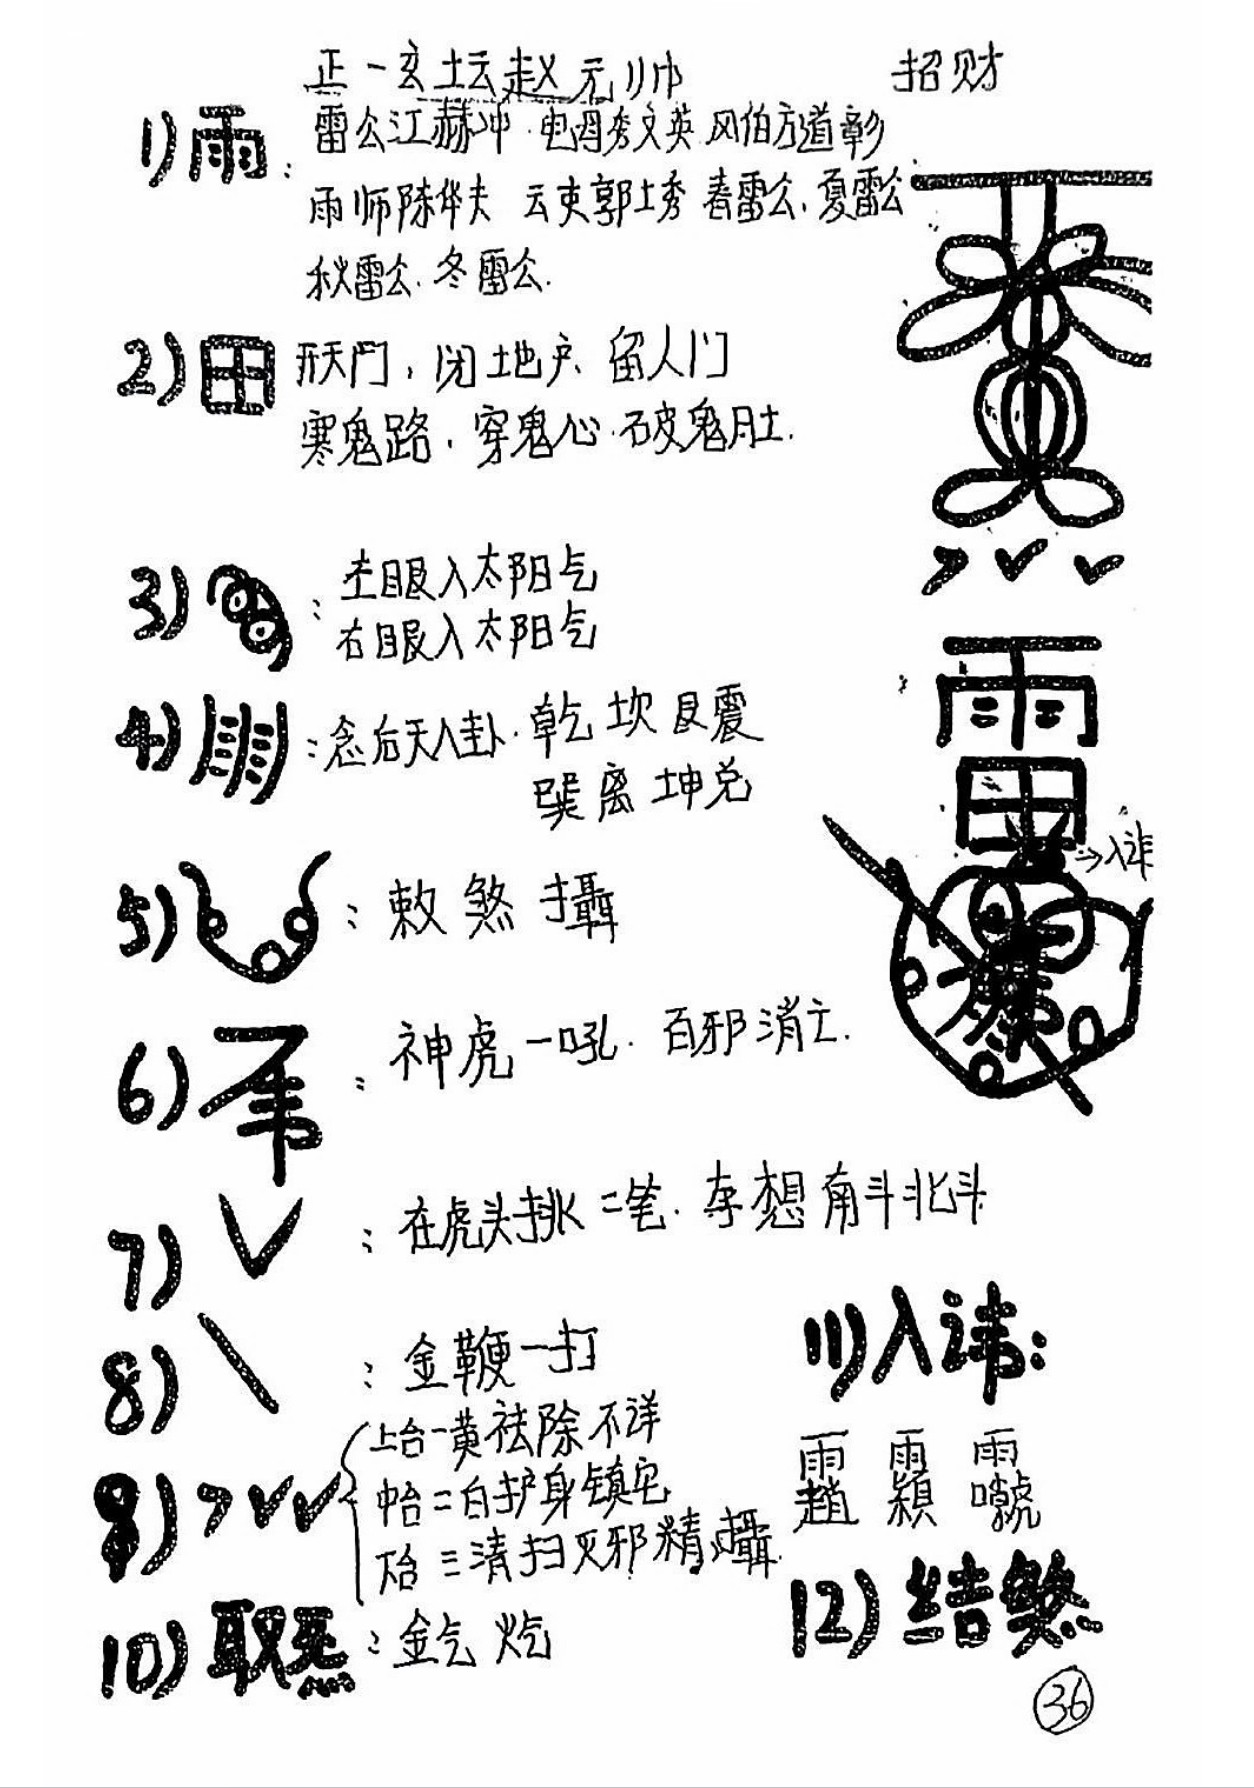 正一玄坛赵元帅 招财
1) 雨: 雷公江赫冲.电母秀文英.风伯方道彰
雨师陈华夫 云吏郭士秀 春雷公.夏雷公
秋雷公.冬雷公.
2) 田 开天门,闭地户.留人门
塞鬼路.穿鬼心.破鬼肚.
3) : 左眼入太阳气
右眼入太阳气
4) : 念后天八卦.乾坎艮震
巽离坤兑
→入讳
5) : 敕煞攝
6) : 神虎一吼.百邪消亡.
7) : 在虎头挑二笔.存想南斗北斗
8) : 金鞭一打
9) 上台一黄祛除不详
中台二白护身镇宅
下台三清扫灭邪精攝
10) : 金气炁
11) 入讳:
12) 结煞
36